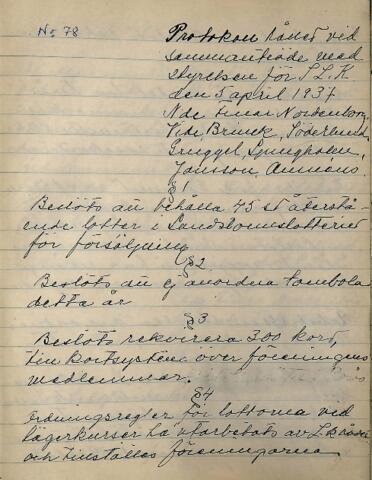 No 78
Protokoll hållet vid
sammanträde med
styrelsen för S L K
den 5 april 1937
Nde Einar Nordenborg,
Vide Brunck, Söderlund,
Gruggel, Ljungholm,
Jonsson,
§ 1
Beslöts att behålla 75 st återstå-
ende lotter i Landstormslotteriet
för försäljning
§ 2
Beslöts att ej anordna tombola
detta år
§ 3
Beslöts rekvirera 300 kort,
till kortsystem över föreningens
medlemmar.
§ 4
Ordningsregler för lottorna vid
lägerkurser ha utarbetats av
och tillställes föreningarna